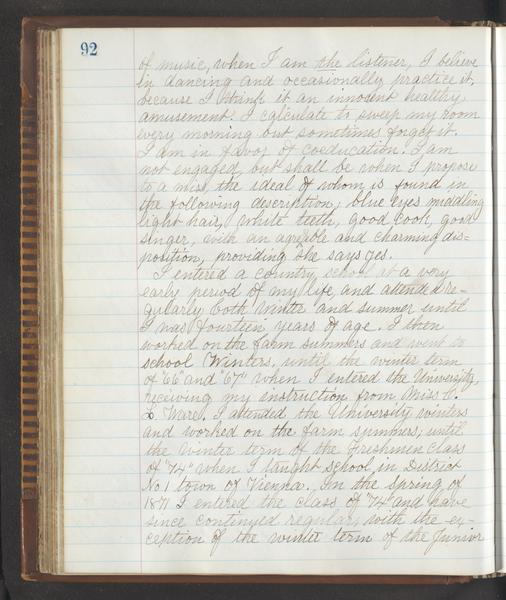 92
of music, when I am the listener, I believe
in dancing and occasionally practice it,
because I think it an innocent healthy
amusement. I calculate to sweep my room
every morning but sometimes forget it.
I am in favor of coeducation. I am
not engaged, but shall be when I propose
to a miss, the ideal of whom is found in
the following description, blue eyes middling
light hair, white teeth, good cook, good
singer, with an agreable and charming dis=
position, providing she says yes.
I entered a country school at a very
early period of my life, and attended re-
gularly both winter and summer until
I was fourteen years of age. I then
worked on the farm summers and went to
school Winters, until the winter term
of "66" and "67" when I entered the University,
receiving my instruction from Miss
Ware. I attended the University winters
and worked on the farm summers, until
the winter term of the Freshmen class
of "74" when I taught school in District
No 1 town of Vienna. In the spring of
1871 I entered the class of "74" and have
since continued regular, with the ex-
ception of the winter term of the Junior